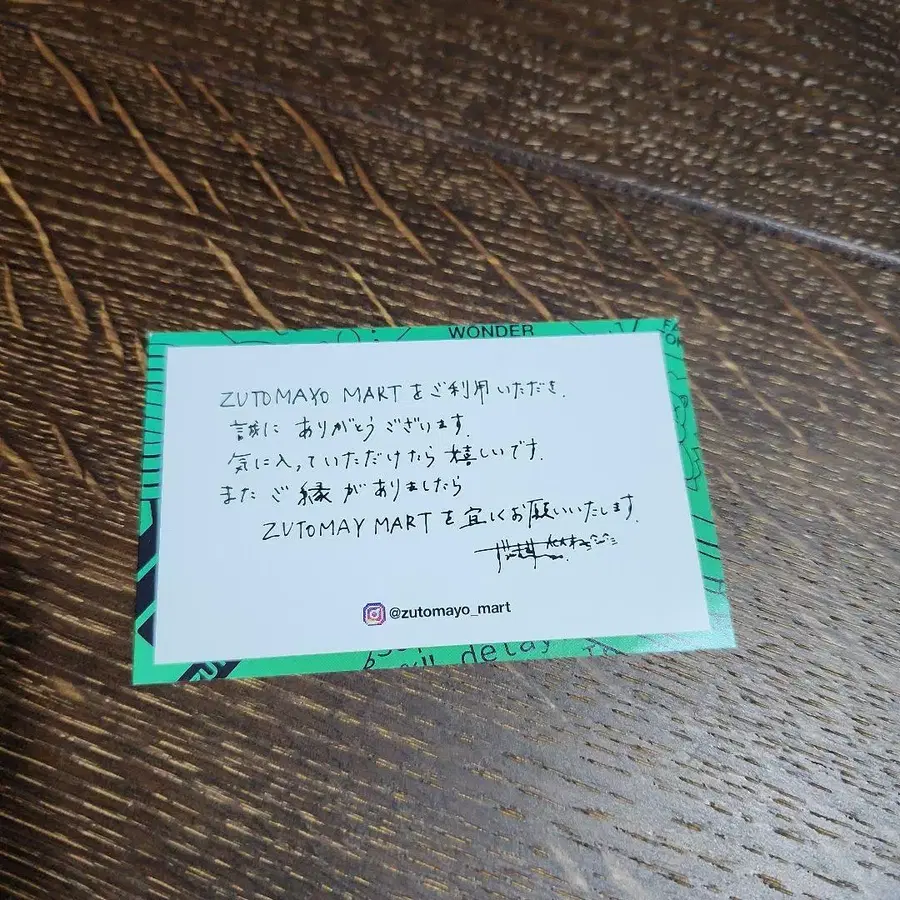 WONDER
ZUTOMAYO MARTをご利用いただき.
誠に ありがとうございます.
気に入っていただけたら嬉しいです.
また ご縁がありましたら
ZUTOMAY MARTを宜しくお願いいたします.
@zutomayo_mart
delay